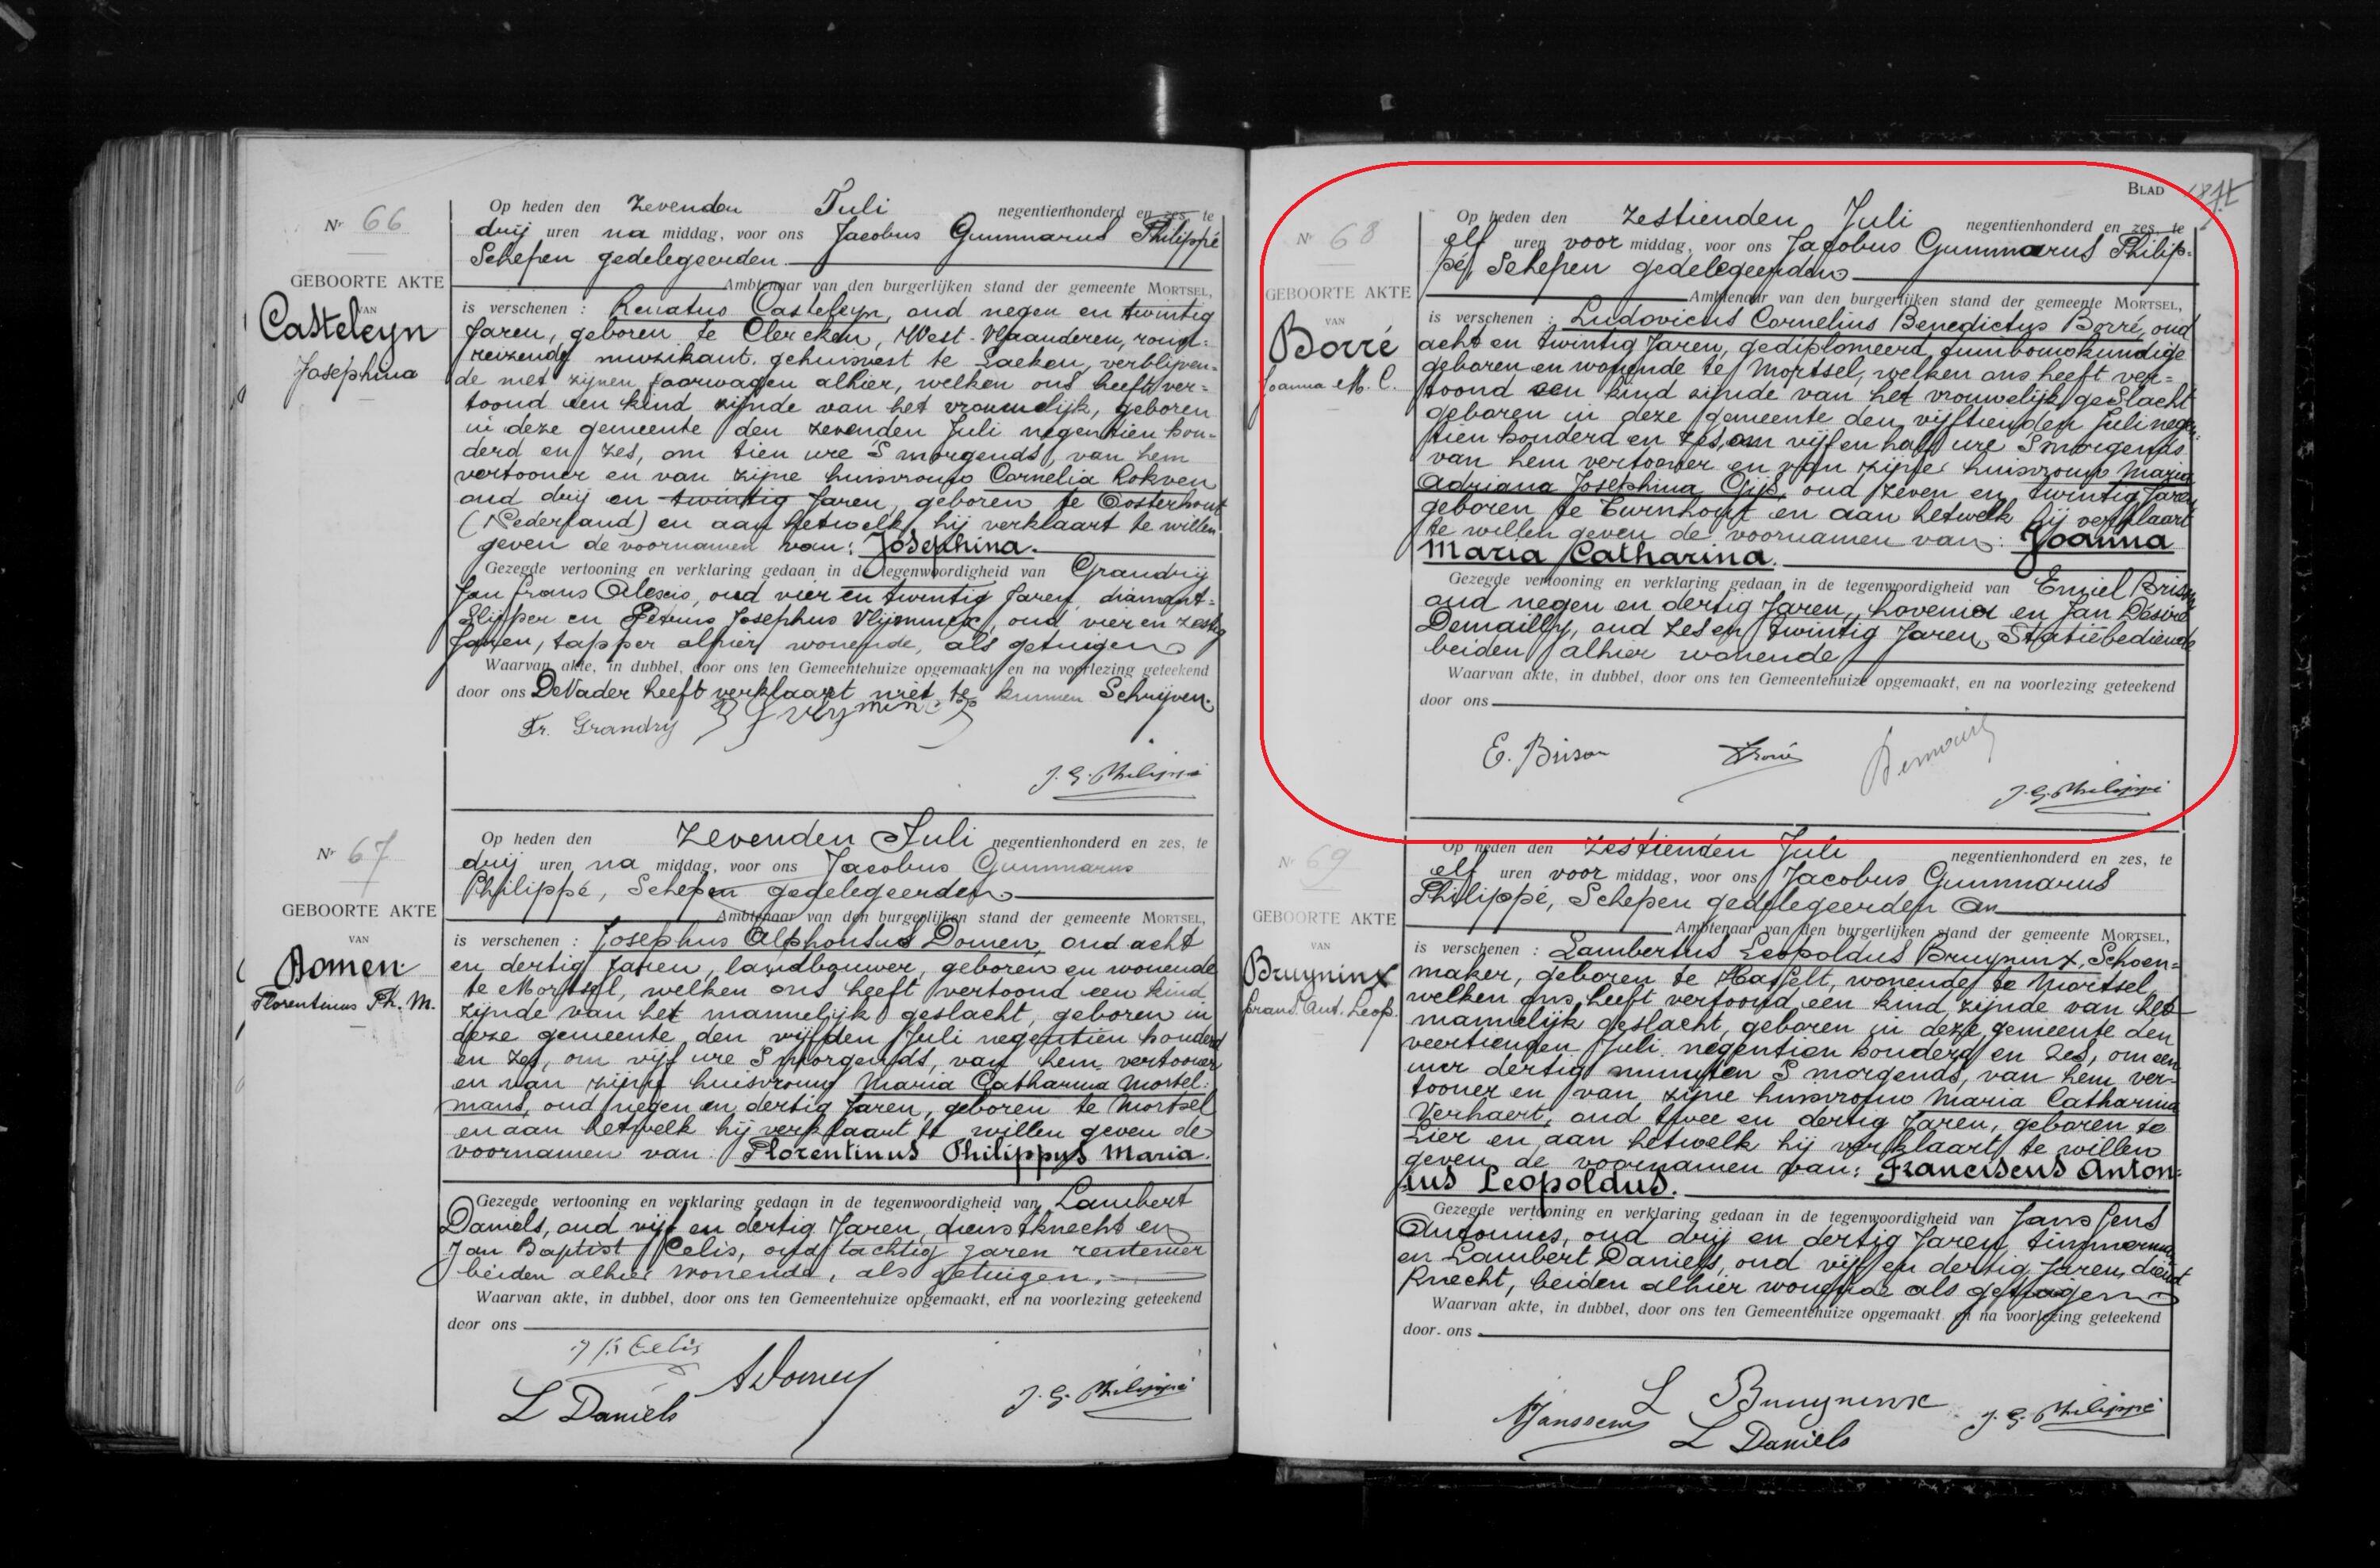 Nr 66
GEBOORTE AKTE
VAN
Casteleyn
Josephina
Op heden den zevenden Juli negentienhonderd en zes, te
drij uren na middag, voor ons Jacobus Gummarus Philippé
Schepen gedelegeerden
Ambtenaar van den burgerlijken stand der gemeente MORTSEL,
is verschenen : Renatus Casteleyn, oud negen en twintig
Jaren, geboren te Clercken, West-Vlaanderen, rond-
reizende muzikant, gehuisvest te Laeken, verblijven-
de met zijnen foorwagen alhier, welken ons heeft ver-
toond een kind zijnde van het vrouwelijk, geboren
in deze gemeente den zevenden Juli negentien hon-
derd en zes, om tien ure S'morgends, van hem
vertooner en van zijne huisvrouw Cornelia Rokven
oud drij en twintig Jaren, geboren te Oosterhout
(Nederland) en aan hetwelk hij verklaart te willen
geven de voornamen van: Josephina.
Gezegde vertooning en verklaring gedaan in de tegenwoordigheid van Grandrij
Jan Frans Alexis, oud vier en twintig Jaren, diamant-
slijper en Petrus Josephus Vlijminck, oud vier en zestig
Jaren, tapper alhier wonende, als getuigen
Waarvan akte, in dubbel, door ons ten Gemeentehuize opgemaakt, en na voorlezing geteekend
door ons De Vader heeft verklaart niet te kunnen Schrijven.
Fr. Grandrij
J. G. Philippé
Nr 67
GEBOORTE AKTE
VAN
Domen
Florentinus Ph. M.
Op heden den Zevenden Juli negentienhonderd en zes, te
drij uren na middag, voor ons Jacobus Gummarus
Philippé, Schepen gedelegeerden
Ambtenaar van den burgerlijken stand der gemeente MORTSEL,
is verschenen : Josephus Alphonsus Domen, oud acht
en dertig Jaren, landbouwer, geboren en wonende
te Mortsel, welken ons heeft vertoond een kind
zijnde van het mannelijk geslacht, geboren in
deze gemeente den vijfden Juli negentien honderd
en zes, om vijf ure S'morgends, van hem vertooner
en van zijne huisvrouw Maria Catharina Mortel-
mans, oud negen en dertig Jaren, geboren te Mortsel
en aan hetwelk hij verklaart te willen geven de
voornamen van: Florentinus Philippus Maria.
Gezegde vertooning en verklaring gedaan in de tegenwoordigheid van Lambert
Daniels, oud vijf en dertig Jaren, dienstknecht en
Jan Baptist Celis, oud tachtig jaren rentenier
beiden alhier wonende, als getuigen.
Waarvan akte, in dubbel, door ons ten Gemeentehuize opgemaakt, en na voorlezing geteekend
door ons
J B Celis
A Domen
L Daniels
J. G. Philippé
BLAD
Nr 68
GEBOORTE AKTE
VAN
Borré
Joanna M. C.
Op heden den zestienden Juli negentienhonderd en zes, te
elf uren voor middag, voor ons Jacobus Gummarus Philip-
pé, Schepen gedelegeerden
Ambtenaar van den burgerlijken stand der gemeente MORTSEL,
is verschenen : Ludovicus Cornelius Benedictus Borré, oud
acht en twintig Jaren, gediplomeerd tuinbouwkundige
geboren en wonende te Mortsel, welken ons heeft ver-
toond een kind zijnde van het vrouwelijk geslacht
geboren in deze gemeente den vijftienden Juli negen-
tien honderd en zes, om vijf en half ure S'morgends
van hem vertooner en van zijne huisvrouw Maria
Adriana Josephina Gijs, oud zeven en twintig Jaren
geboren te Turnhout en aan hetwelk hij verklaart
te willen geven de voornamen van: Joanna
Maria Catharina.
Gezegde vertooning en verklaring gedaan in de tegenwoordigheid van Emiel Brison
oud negen en dertig Jaren, hovenier en Jan Désiré
Demailly, oud zes en twintig Jaren, Statiebediende
beiden alhier wonende
Waarvan akte, in dubbel, door ons ten Gemeentehuize opgemaakt, en na voorlezing geteekend
door ons
E. Brison
J. G. Philippé
Nr 69
GEBOORTE AKTE
VAN
Bruyninx
Frans. Ant. Leop.
Op heden den zestienden Juli negentienhonderd en zes, te
elf uren voor middag, voor ons Jacobus Gummarus
Philippé, Schepen gedelegeerden
Ambtenaar van den burgerlijken stand der gemeente MORTSEL,
is verschenen : Lambertus Leopoldus Bruyninx, Schoen-
maker, geboren te Hasselt, wonende te Mortsel
welken ons heeft vertoond een kind zijnde van het
mannelijk geslacht, geboren in deze gemeente den
veertienden Juli negentien honderd en zes, om een
uur dertig minuten S'morgends, van hem ver-
tooner en van zijne huisvrouw Maria Catharina
Verhaert, oud twee en dertig Jaren, geboren te
Lier en aan hetwelk hij verklaart te willen
geven de voornamen van: Franciscus Anton-
ius Leopoldus.
Gezegde vertooning en verklaring gedaan in de tegenwoordigheid van Janssens
Antonius, oud drij en dertig Jaren, timmerman
en Lambert Daniels, oud vijf en dertig Jaren, dienst
knecht, beiden alhier wonende als getuigen
Waarvan akte, in dubbel, door ons ten Gemeentehuize opgemaakt en na voorlezing geteekend
door ons
Janssens
L Bruyninx
L Daniels
J. G. Philippé